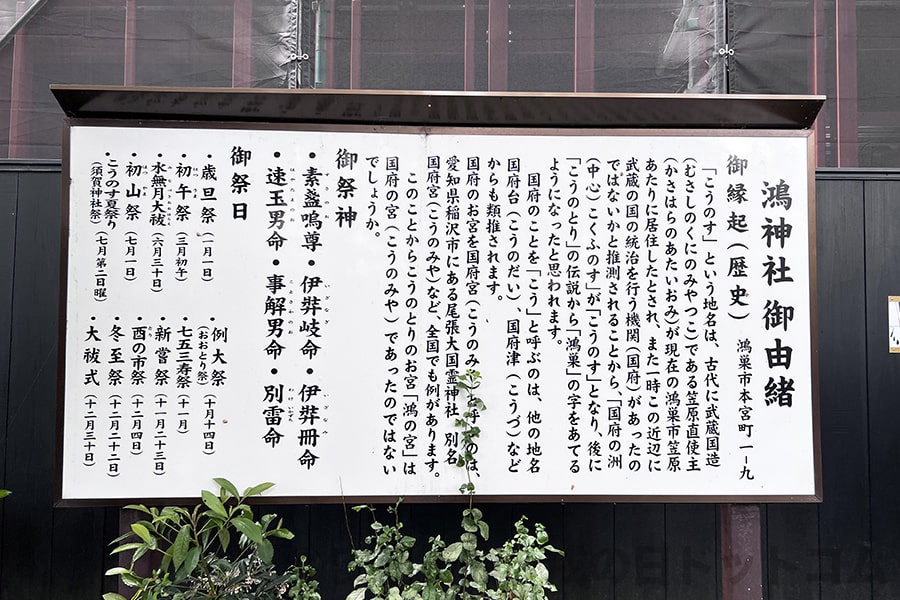 鴻神社 御由緒
鴻巣市本宮町一ー九
御縁起（歴史）
「こうのす」という地名は、古代に武蔵国造
（むさしのくにのみやつこ）である笠原直使主
（かさはらのあたいおみ）が現在の鴻巣市笠原
あたりに居住したとされ、また一時この近辺に
武蔵の国の統治を行う機関（国府）があったの
ではないかと推測されることから、「国府の洲
（中心）こくふのす」が「こうのす」となり、後に
「こうのとり」の伝説から「鴻巣」の字をあてる
ようになったと思われます。
国府のことを「こう」と呼ぶのは、他の地名
国府台（こうのだい）、国府津（こうづ）など
からも類推されます。
国府のお宮を国府宮（こうのみや）と呼ぶのは、
愛知県稲沢市にある尾張大国霊神社 別名
国府宮（こうのみや）など、全国でも例があります。
このことからこうのとりのお宮「鴻の宮」は
国府の宮（こうのみや）であったのではない
でしょうか。
御祭神
・素盞嗚尊・伊弉岐命・伊弉冊命
・速玉男命・事解男命・別雷命
御祭日
・歳旦祭（一月一日）
・初午祭（三月初午）
・水無月大祓（六月三十日）
・初山祭（七月一日）
・こうのす夏祭り
（須賀神社祭）（七月第二日曜）
・例大祭
（おおとり祭）（十月十四日）
・七五三寿祭（十一月）
・新嘗祭（十一月二十三日）
・酉の市祭（十二月四日）
・冬至祭（十二月二十二日）
・大祓式（十二月三十日）